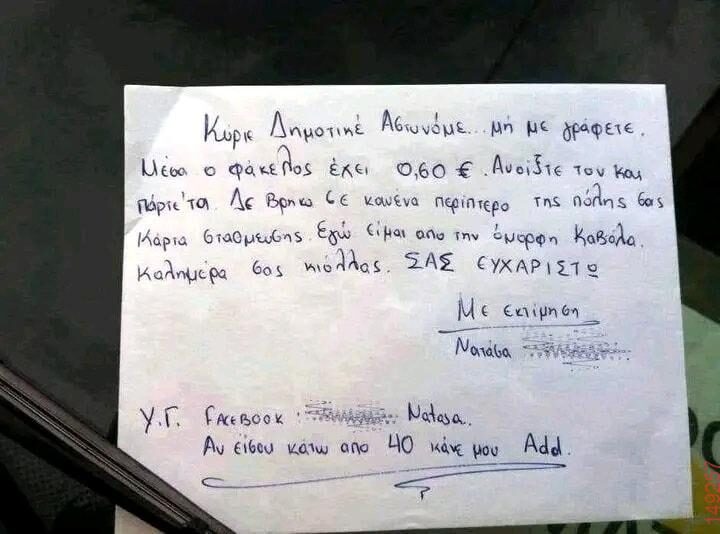 Κύριε Δημοτικέ Αστυνόμε... μή με γράφετε.
Μέσα ο φάκελος έχει 0,60 €. Ανοίξτε τον και
πάρτε'τα. Δε βρήκα σε κανένα περίπτερο της πόλης σας
κάρτα στάθμευσης. Εγώ είμαι απο την όμορφη Καβάλα.
Καλημέρα σας κιόλλας. ΣΑΣ ΕΥΧΑΡΙΣΤΩ
Με εκτίμηση
Νατάσα
Υ.Γ. FACEBOOK : Natasa.
Αν είσαι κάτω απο 40 κάνε μου Add.